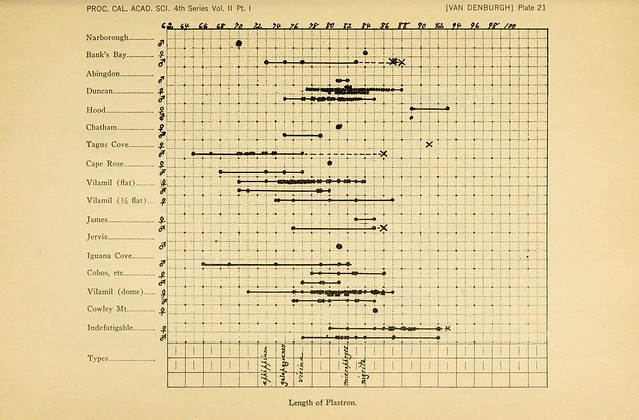 PROC. CAL. ACAD. SCI. 4th Series Vol. II Pt. I
[VAN DENBURGH] Plate 21
62 64 66 68 70 72 74 76 78 80 82 84 86 88 90 92 94 96 98 100
Narborough
Bank's Bay
Abingdon
Duncan
Hood
Chatham
Tagus Cove
Cape Rose
Vilamil (flat)
Vilamil (½ flat)
James
Jervis
Iguana Cove
Cobos, etc.
Vilamil (dome)
Cowley Mt.
Indefatigable
Types
ephippium
galapagoensis
vicina
microphyes
nigrita
Length of Plastron.